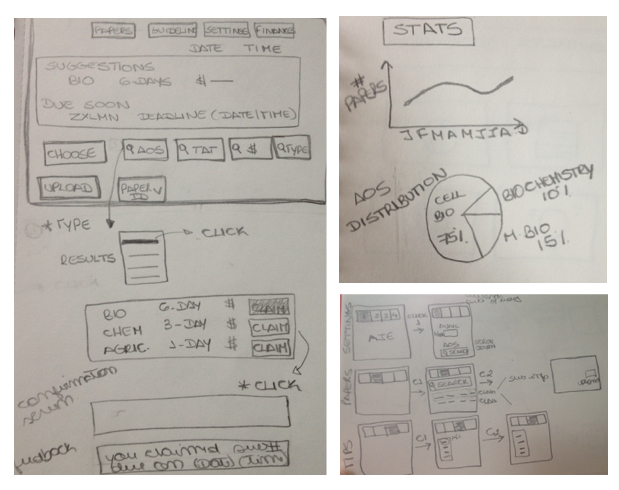 PAPERS GUIDELINE SETTINGS FINANCES
DATE TIME
SUGGESTIONS
BIO 6-DAYS $ —
DUE SOON
ZXLMN DEADLINE (DATE/TIME)
CHOOSE AOS TAT $ TYPE
UPLOAD PAPER ID
* TYPE
CLICK
RESULTS
BIO 6-DAY $ CLAIM
CHEM 3-DAY $ CLAIM
AGRIC. 1-DAY $ CLAIM
* CLICK
confirmation
screen
feedback
you claimed
due on (Date) (Time)
STATS
#
PAPERS
J F M A M J J A D
AOS
DISTRIBUTION
CELL
BIO
75%
BIOCHEMISTRY
10%
M. BIO
15%
SETTINGS
CLICK
1
AOS
PAPERS
C1
SEARCH
C2
TIPS
C1
C2